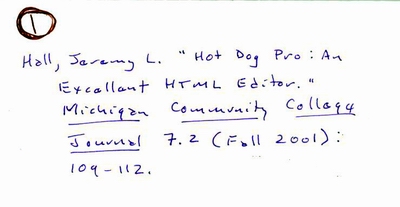 1
Hall, Jeremy L. "Hot Dog Pro: An
Excellent HTML Editor."
Michigan Community College
Journal 7.2 (Fall 2001):
109-112.